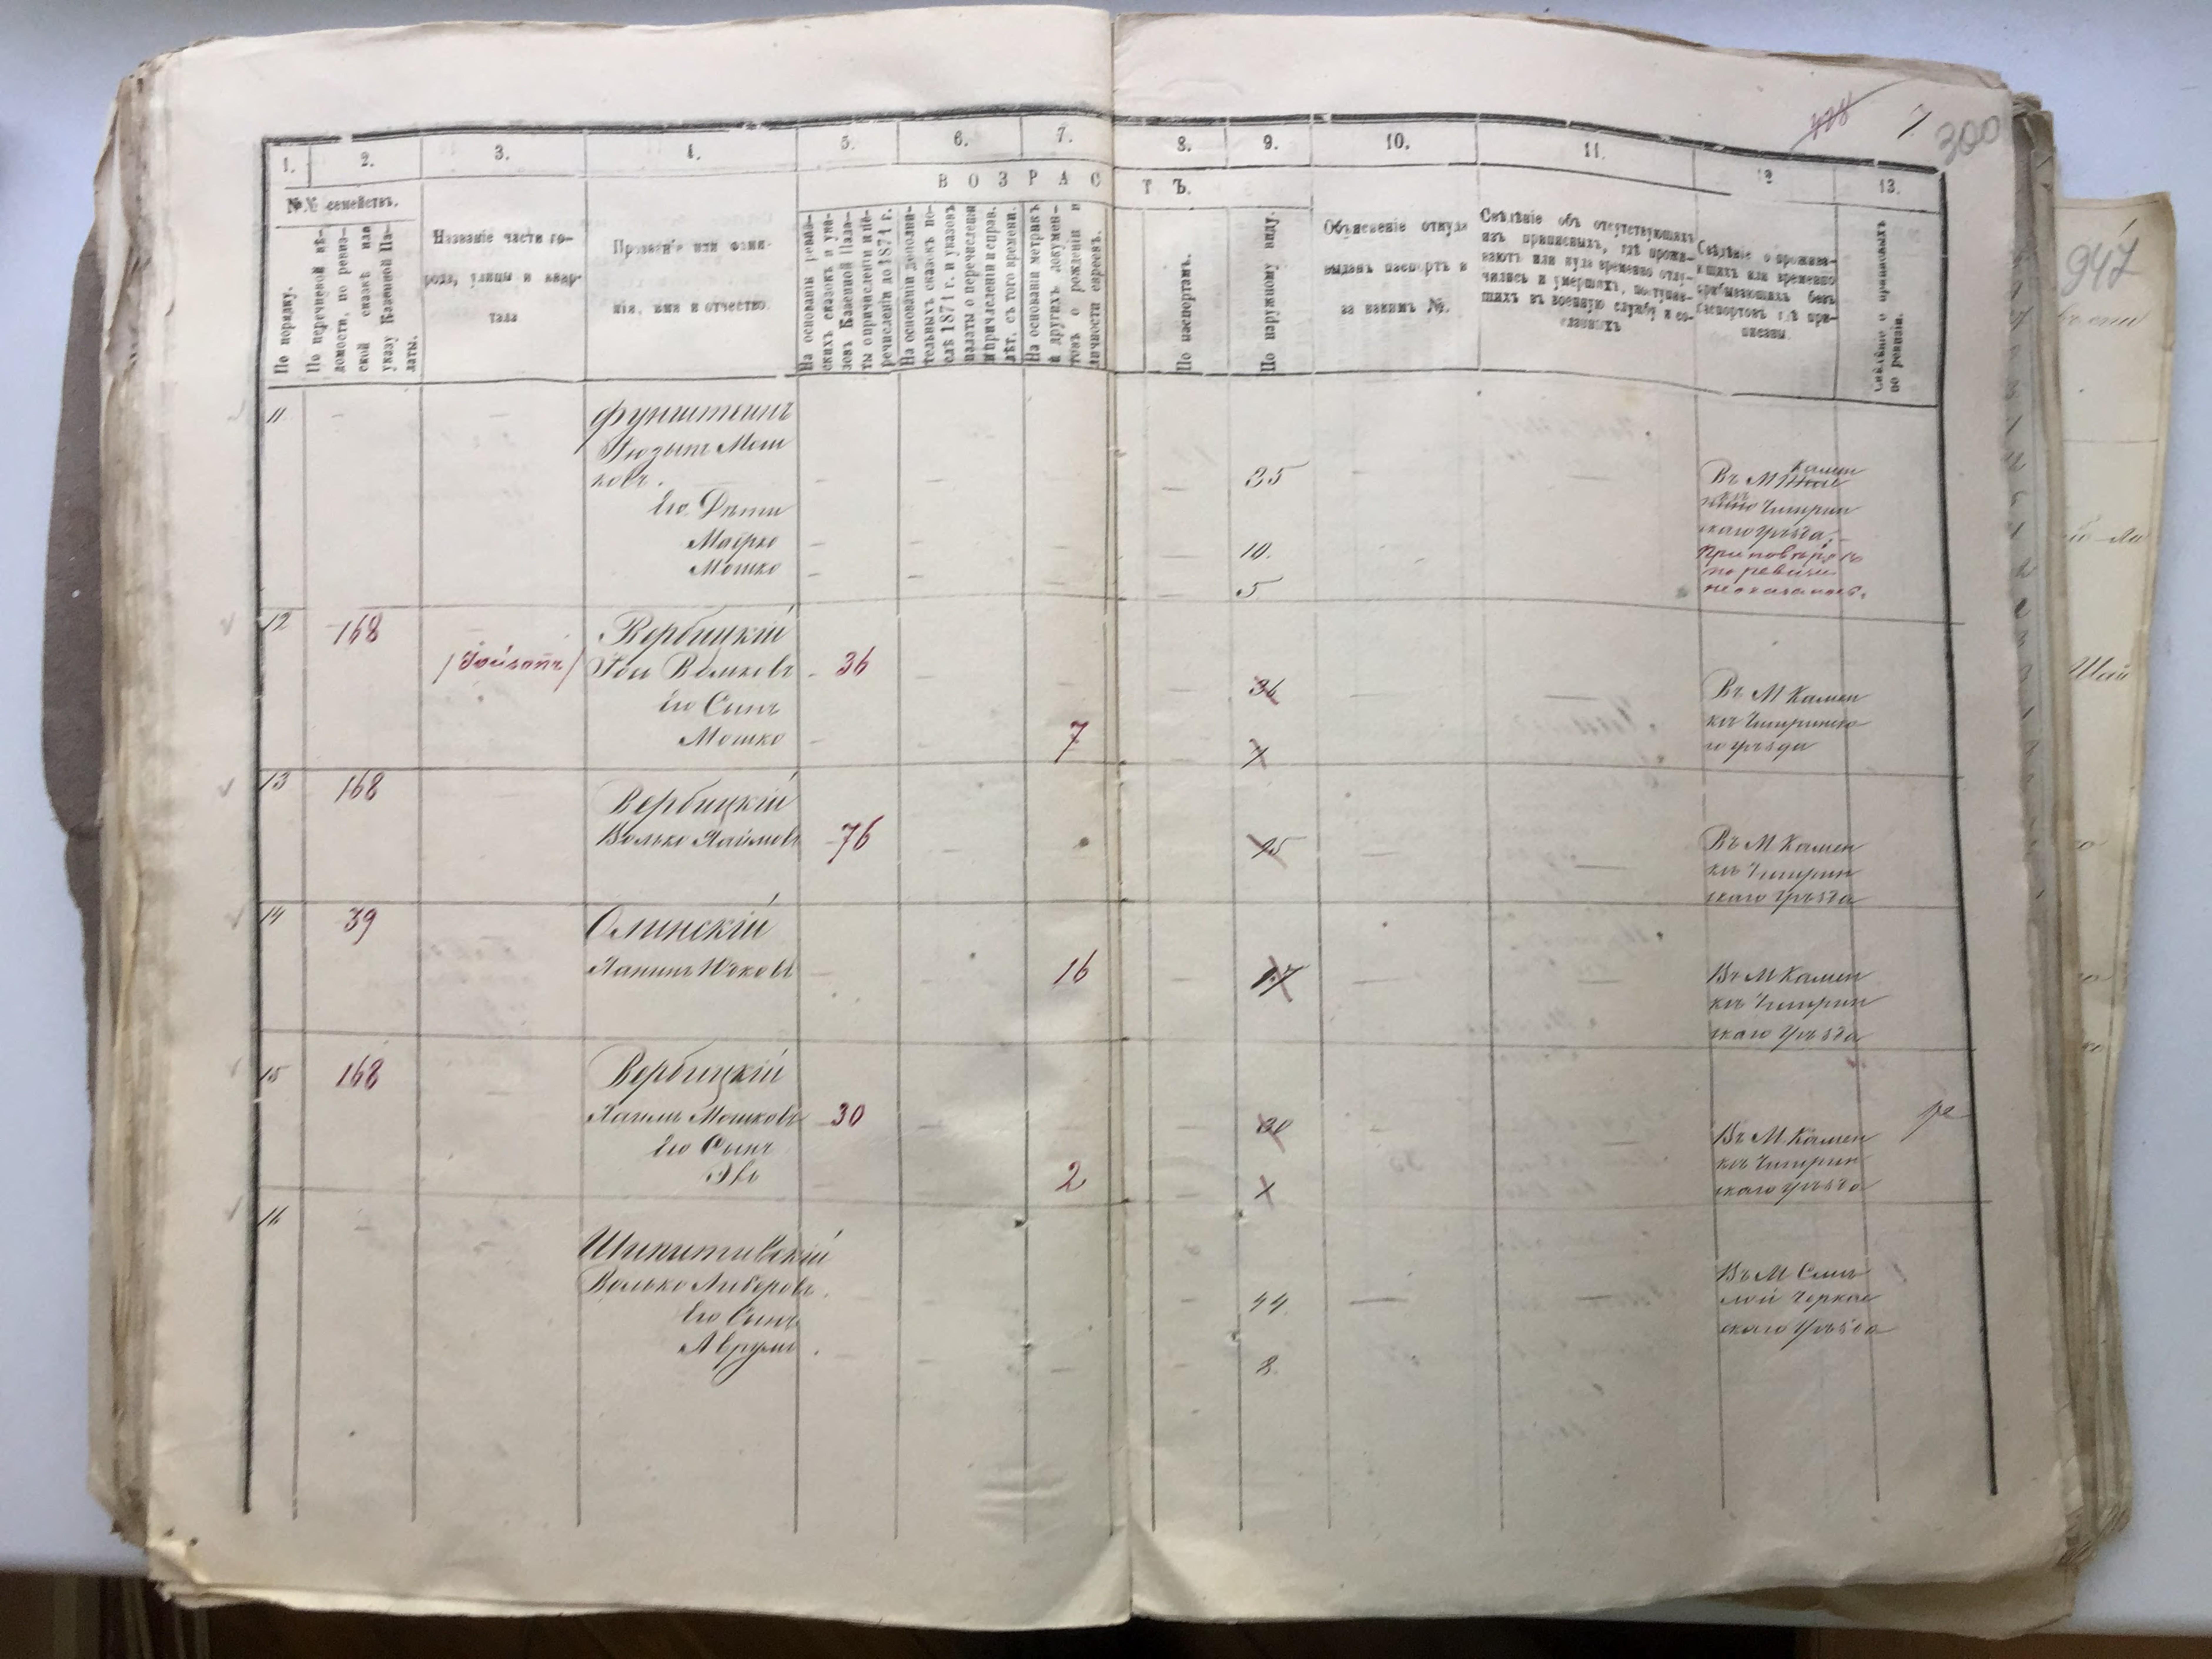 7
300
1.
2.
3.
4.
5.
6.
7.
8.
9.
10.
11.
12
13.
В О З Р А С Т Ъ.
№№ семействъ.
По порядку.
По перечневой вѣ-
домости, по ревиз-
ской сказкѣ или
указу Казенной Па-
латы.
Названіе части го-
рода, улицы и квар-
тала
Прозваніе или фами-
лія, имя и отчество.
На основаніи ревиз-
скихъ сказокъ и ука-
зовъ Казенной Пала-
ты о причисленіи и пе-
речисленіи до 1871 г.
На основаніи дополни-
тельныхъ сказокъ по-
слѣ 1871 г. и указовъ
палаты о перечисленіи
и причисленіи и справ.
лѣт. съ того времени.
На основаніи метрикъ
и другихъ докумен-
товъ о рожденіи и
личности евреевъ.
По паспортамъ.
По наружному виду.
Объясненіе откуда
выданъ паспортъ и
за какимъ №.
Свѣдѣніе объ отсутствующихъ
изъ приписныхъ, гдѣ прожи-
ваютъ или куда временно отлу-
чились и умершихъ, поступив-
шихъ въ военную службу и со-
сланныхъ
Свѣдѣніе о прожива-
ющихъ или временно
пребывающихъ безъ
паспортовъ гдѣ при-
писаны
Свѣдѣніе о приписныхъ
по ревизіи.
11
Фунштеинъ
Мош
ковъ.
Его Дѣти
Маірко
Мошко
35
10.
5
Въ М Камен
кѣ Чигирин
скаго уѣзда.
При повѣркѣ
по ревизіи
не оказалось.
12
168
Вербицкій
Волковъ
36
Его Сынъ
Мошко
7
36
7
Въ М Камен
кѣ Чигиринска
го уѣзда
13
168
Вербицкій
Волько Хаимовъ
76
75
Въ М Камен
кѣ Чигирин
скаго уѣзда
14
39
Олинскій
16
17
Въ М Камен
кѣ Чигирин
скаго уѣзда
15
168
Вербицкій
Хаимъ Мошковъ
30
Его Сынъ
2
30
Въ М Камен
кѣ Чигирин
скаго уѣзда
16
Шипитивскій
Волько Лейзеровъ
Его Сынъ
Аврумъ
44
8.
Въ М Смѣ
лой Черкас
скаго уѣзда
947